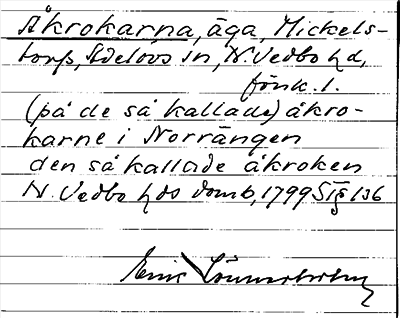 Åkrokarna, äga, Mickels-
torp, Adelövs sn, N. Vedbo hd,
Jönk. l.
(på de så kallade) åkro-
karne i Norrängen
den så kallade åkroken
N. Vedbo hds domb, 1799 § 136
Eric Lönnerholm